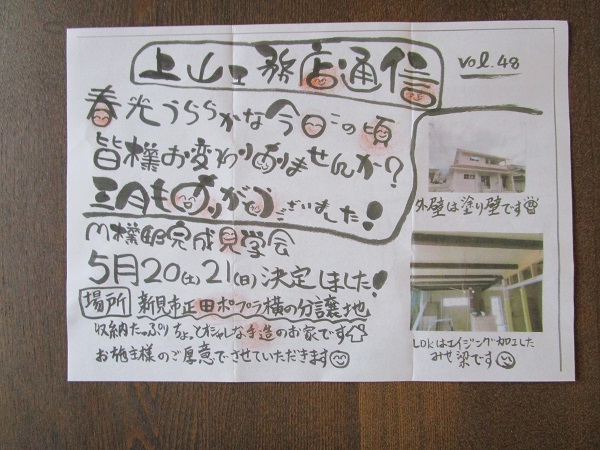 上山工務店通信
vol.48
春光うららかな今日この頃
皆様お変わりありませんか?
三月もありがとうございました!
M様邸完成見学会
5月20(土)、21(日)決定しました!
場所 新見市正田ポプラ横の分譲地
収納たっぷりちょっとオシャレな手造のお家です
お施主様のご厚意でさせていただきます
外壁は塗り壁です
LDKはエイジング加工した
みせ梁です